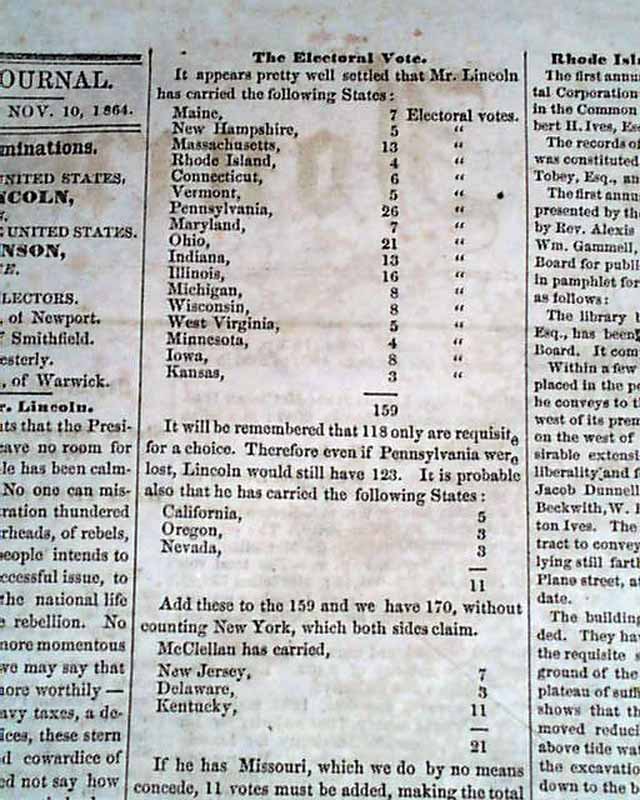 OURNAL.
NOV. 10, 1864.
minations.
UNITED STATES,
NCOLN,
UNITED STATES.
NSON,
LECTORS.
, of Newport.
Smithfield.
esterly.
, of Warwick.
r. Lincoln.
nts that the Presi-
eave no room for
He has been calm-
No one can mis-
tration thundered
rheads, of rebels,
people intends to
ccessful issue, to
the national life
e rebellion. No
more momentous
we may say that
more worthily —
avy taxes, a de-
ices, these stern
d cowardice of
ed not say how
The Electoral Vote.
It appears pretty well settled that Mr. Lincoln
has carried the following States :
Maine, 7 Electoral votes.
New Hampshire, 5 “
Massachusetts, 13 “
Rhode Island, 4 “
Connecticut, 6 “
Vermont, 5 “
Pennsylvania, 26 “
Maryland, 7 “
Ohio, 21 “
Indiana, 13 “
Illinois, 16 “
Michigan, 8 “
Wisconsin, 8 “
West Virginia, 5 “
Minnesota, 4 “
Iowa, 8 “
Kansas, 3 “
159
It will be remembered that 118 only are requisite
for a choice. Therefore even if Pennsylvania were
lost, Lincoln would still have 123. It is probable
also that he has carried the following States :
California, 5
Oregon, 3
Nevada, 3
11
Add these to the 159 and we have 170, without
counting New York, which both sides claim.
McClellan has carried,
New Jersey, 7
Delaware, 3
Kentucky, 11
21
If he has Missouri, which we do by no means
concede, 11 votes must be added, making the total
Rhode Isl
The first annu
tal Corporation
in the Common
bert H. Ives, Es
The records of
was constituted
Tobey, Esq., an
The first annu
presented by the
by Rev. Alexis
Wm. Gammell,
Board for publi
in pamphlet for
as follows :
The library b
Esq., has been
Board. It com
Within a few
placed in the p
he conveys to th
west of its prem
on the west of
sirable extensi
liberality and f
Jacob Dunnell
Beckwith, W. I
ton Ives. The
tract to convey
lying still farth
Plane street, at
date.
The building
ded. They hav
the requisite s
ground of the
plateau of suffi
shows that th
moved reduci
above tide wat
the excavation
down to the b